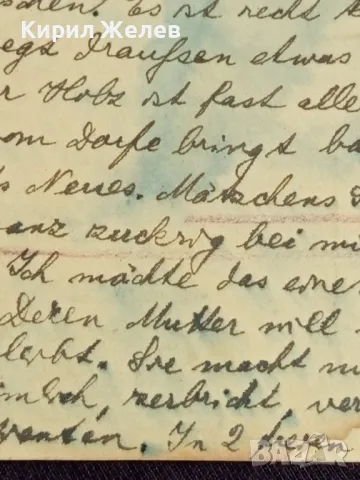 Кирил Желев
Es ist recht
draußen etwas
Holz ist fast alle
vom Dorfe bringt
Neues. Mätschens
ganz zuckrig bei mi
Ich möchte das eine
Deren Mutter will
lebt. Sie macht
zerbricht, ver
In 2 Tagen
bazar.bg